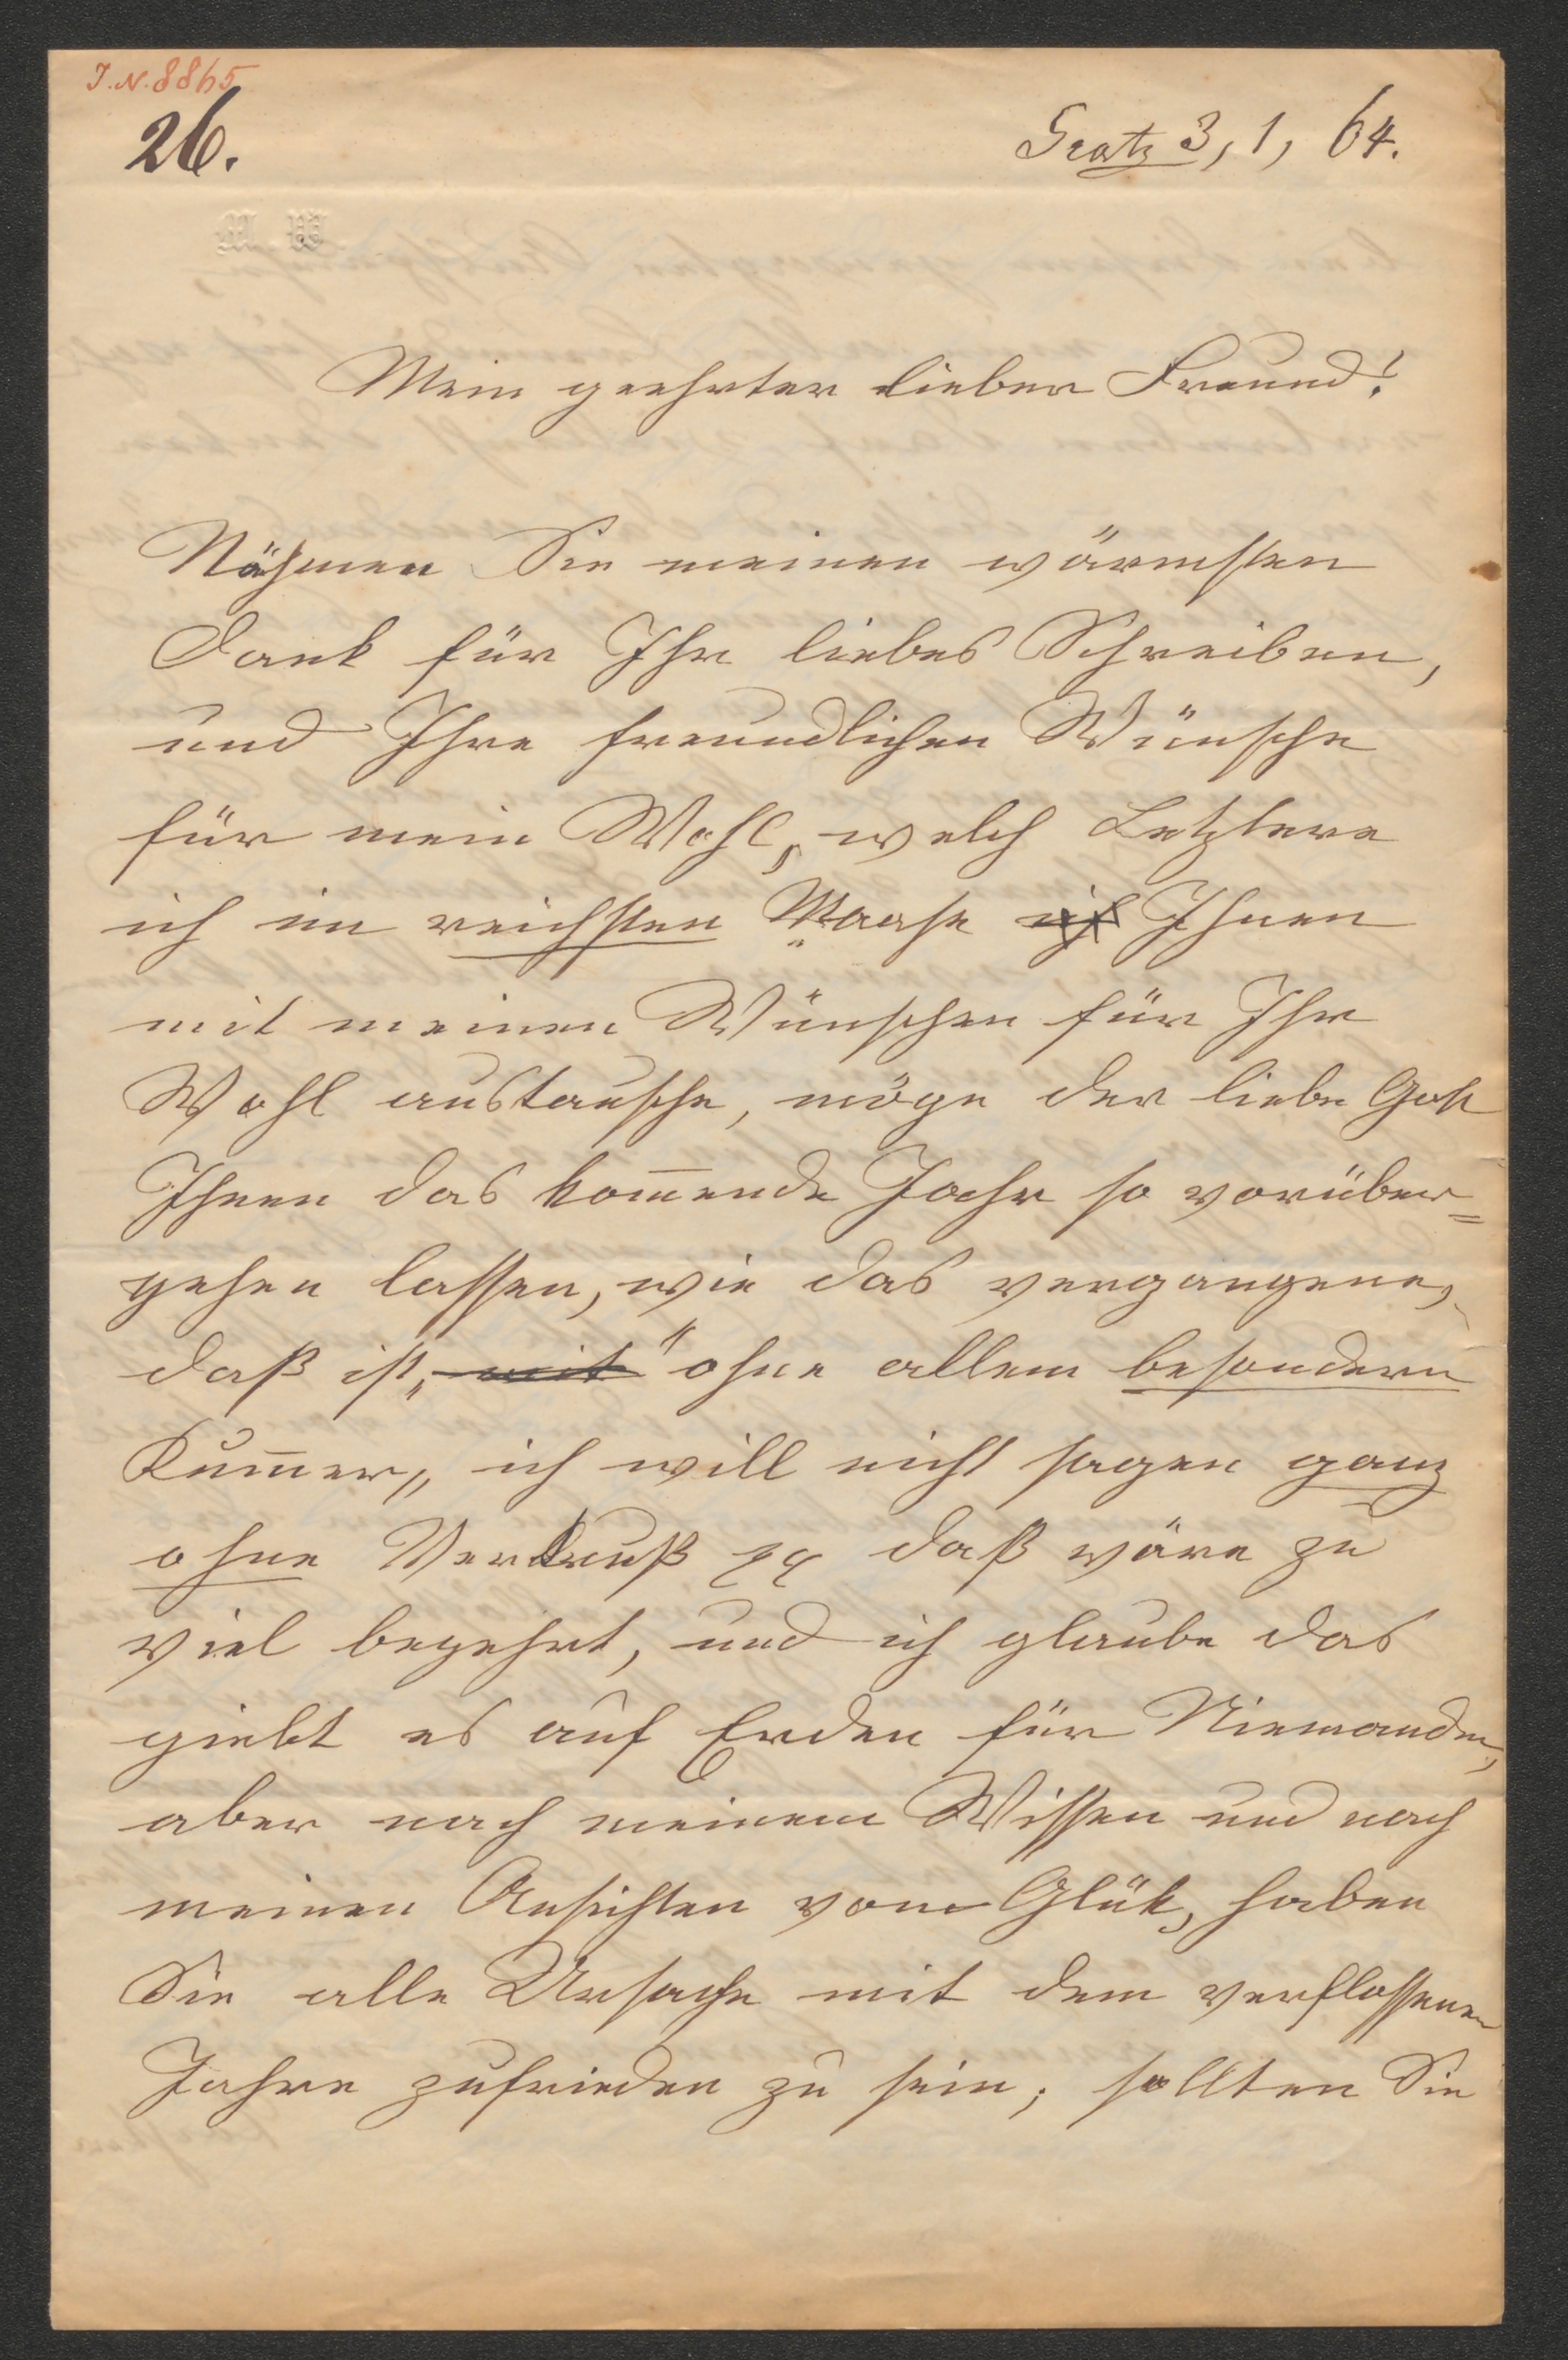 J.N. 8865
26.
Gratz 3, 1, 64.
Mein geehrter lieber Freund!
Nähmen Sie meinen wärmsten
Dank für Ihr liebes Schreiben,
und Ihre freundlichen Wünsche
für mein Wohl, welch Letztere
ich im reichsten Maase ich Ihnen
mit meinen Wünschen für Ihr
Wohl austausche, möge der liebe Gott
Ihnen das kom̄ende Jahr so vorüber=
gehen lassen, wie das vergangene,
daß ist, „mit" ohne allem besondern
Kum̄er, ich will nicht sagen ganz
ohne Verdruß daß wäre zu
viel begehrt, und ich glaube das
giebt es auf Erden für Niemanden,
aber nach meinem Wissen und nach
meinen Ansichten vom Glük, haben
Sie alle Ursache mit dem verflossenen
Jahre zufrieden zu sein; sollten Sie